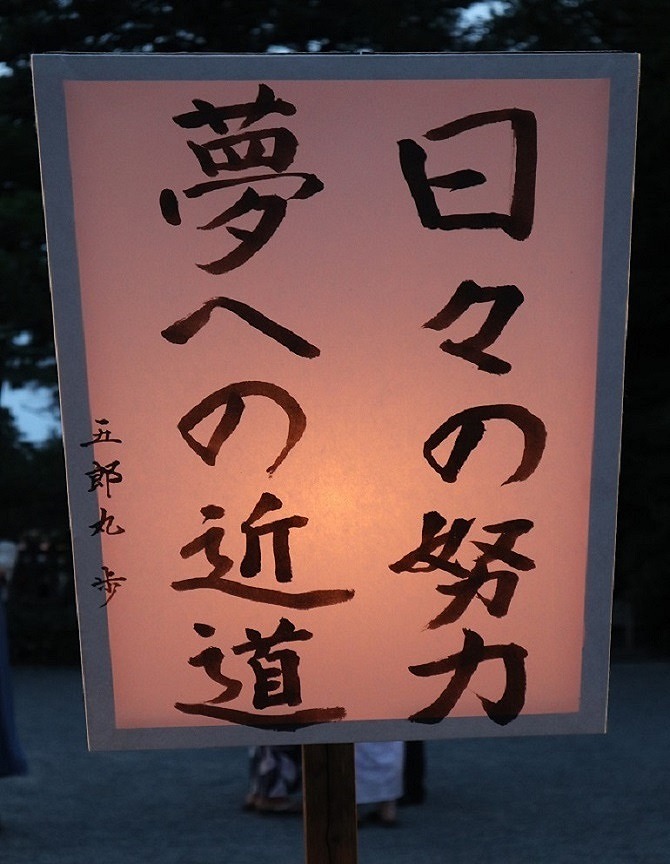 日々の努力
夢への近道
五郎丸 歩